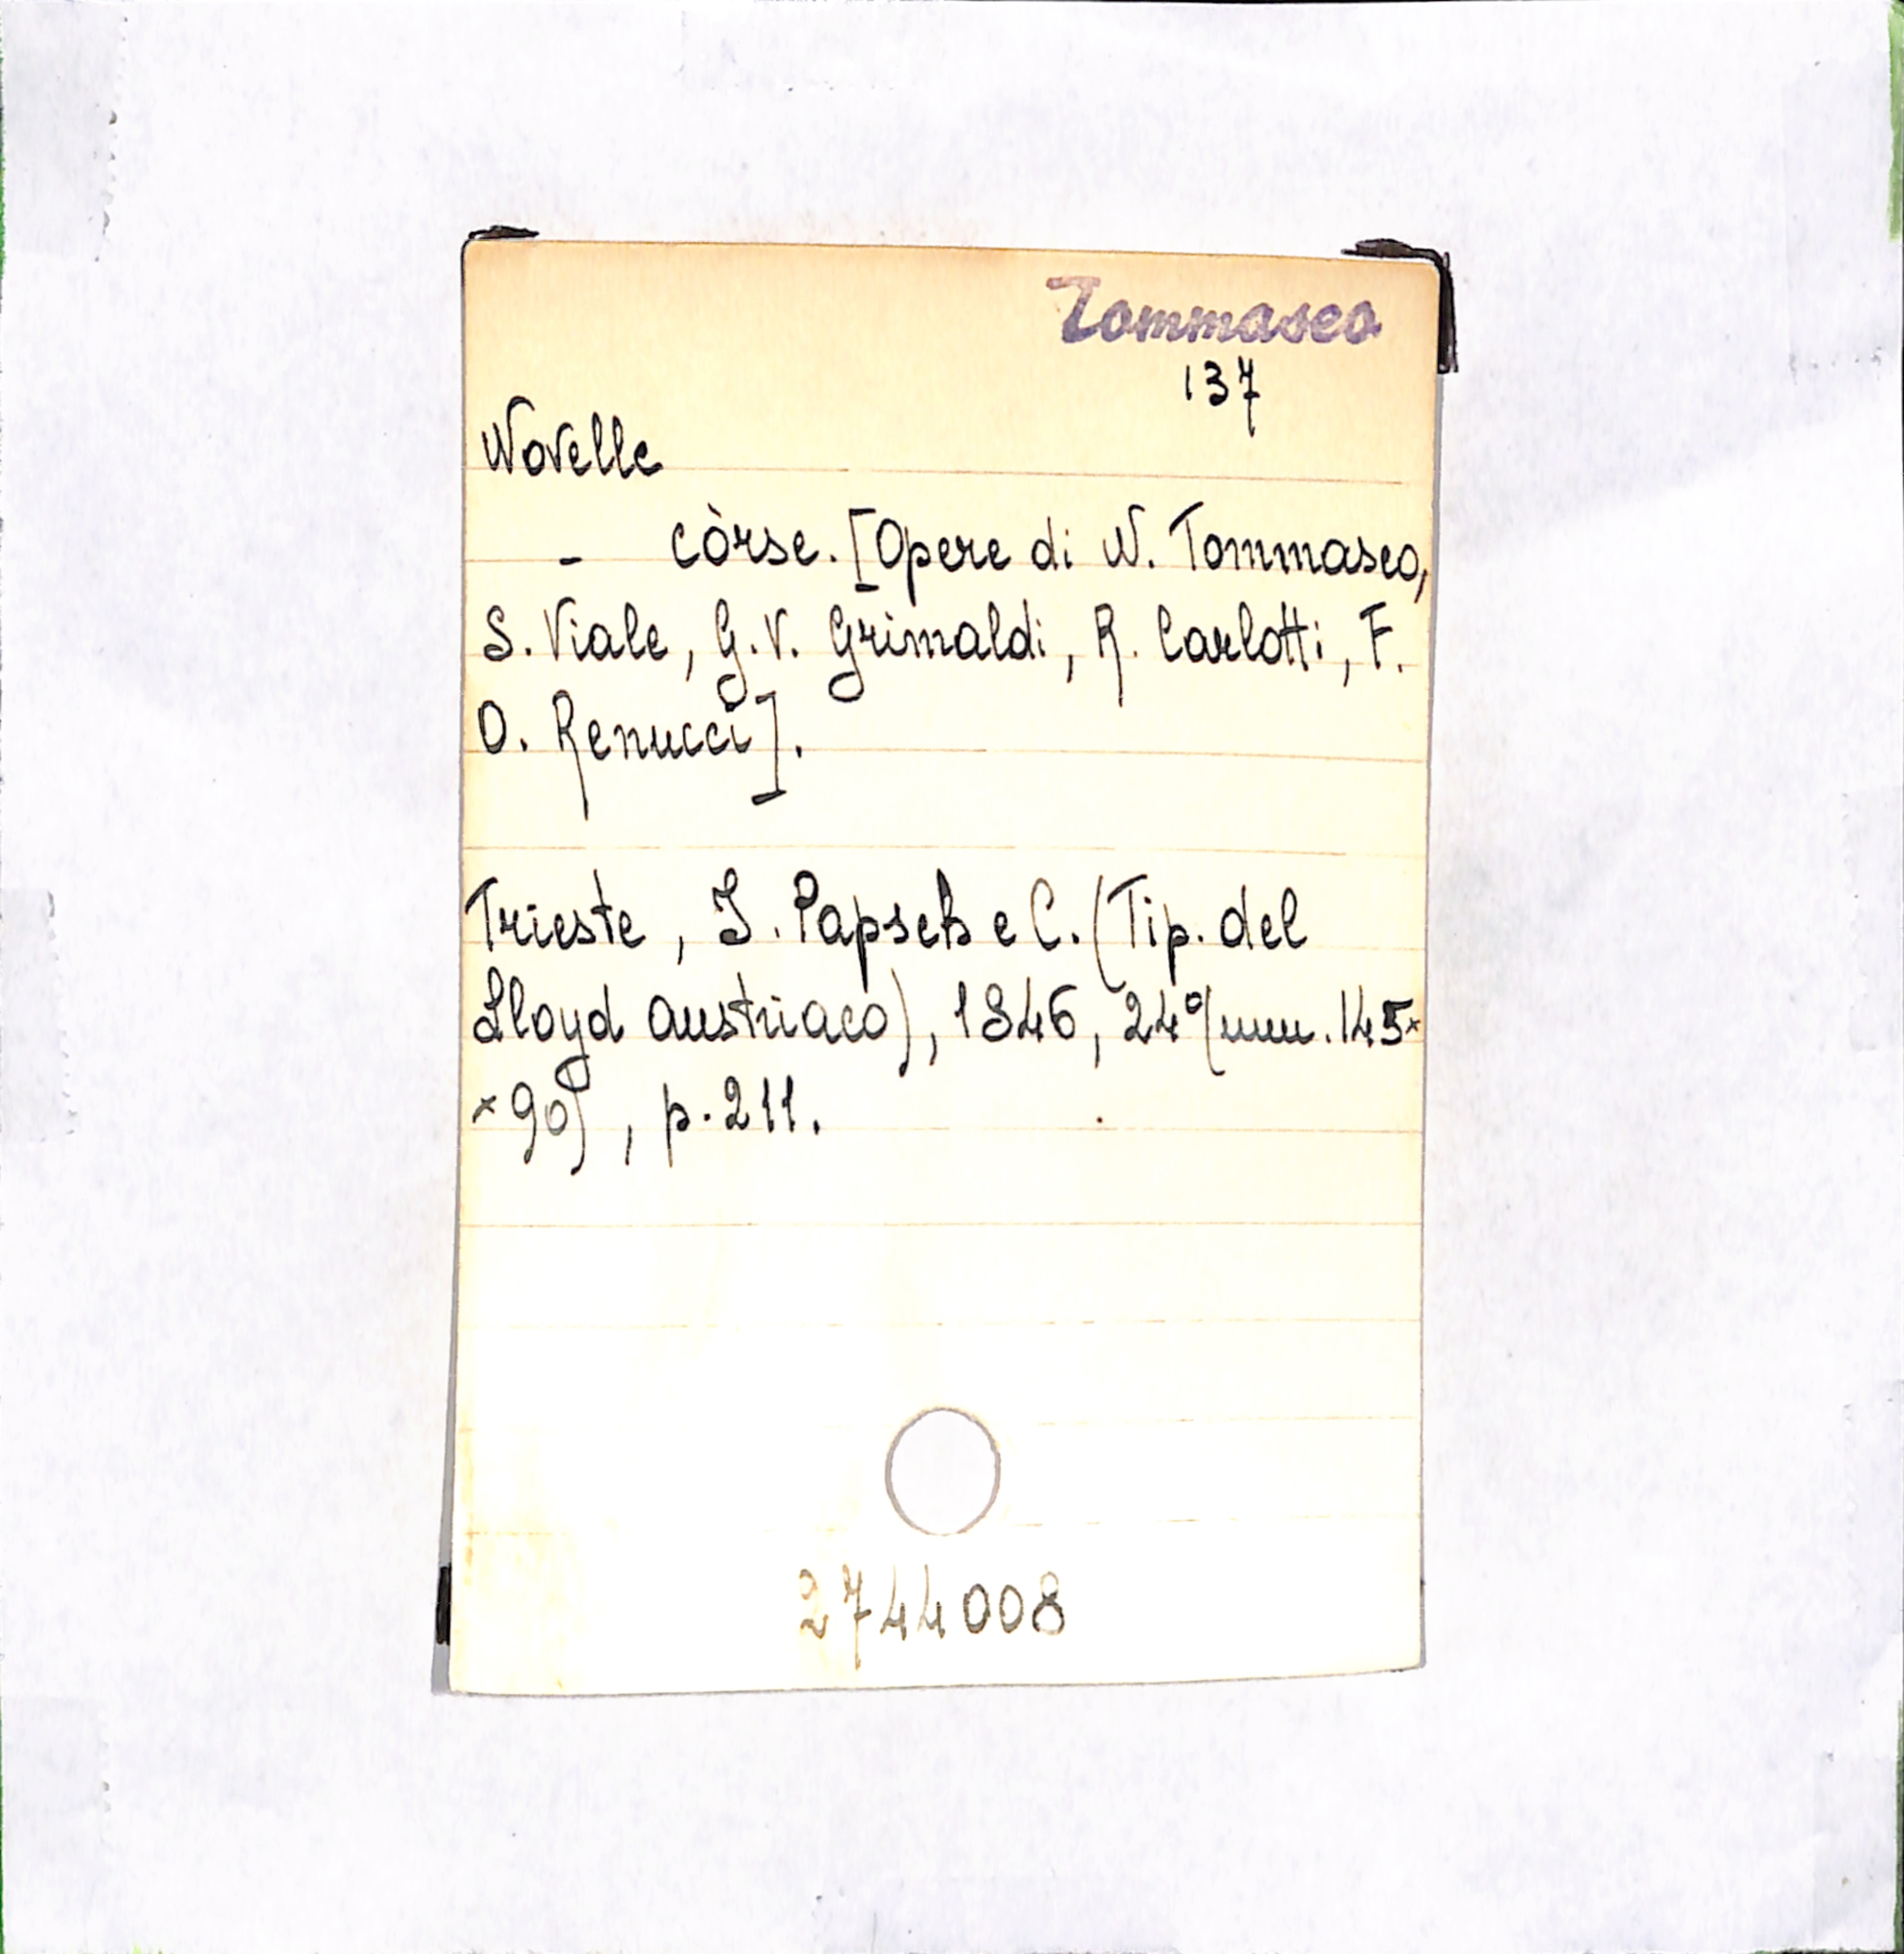 Tommaseo
137
Novelle
- còrse. [Opere di N. Tommaseo,
S. Viale, G.V. Grimaldi, R. Carlotti, F.
O. Renucci].
Trieste, I. Papsch e C. (Tip. del
Lloyd austriaco), 1846, 24° (mm. 145×
×90), p. 211.
2744008